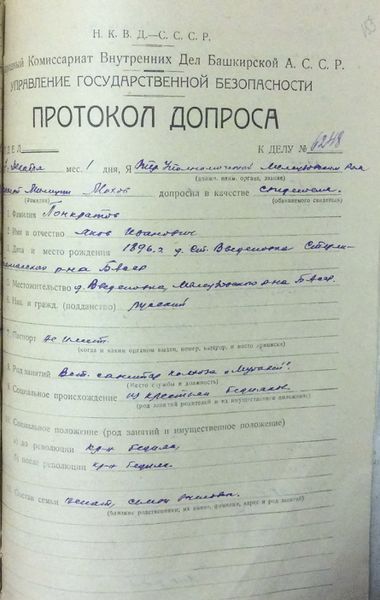 Н. К. В. Д.—С. С. С. Р.
Комиссариат Внутренних Дел Башкирской А. С. С. Р.
УПРАВЛЕНИЕ ГОСУДАРСТВЕННОЙ БЕЗОПАСНОСТИ
ПРОТОКОЛ ДОПРОСА
К ДЕЛУ № 6248
мес. 1 дня, Я
допросил в качестве свидетеля.
(фамилия) (обвиняемого свидетеля)
1. Фамилия Панкратов
2. Имя и отчество Яков Иванович
3. Дата и место рождения 1896 г. д. Ст. Введеновка
р-на БАССР
5. Местожительство д. Введеновка, р-на БАССР.
6. Нац. и гражд. (подданство) русский
7. Паспорт не имеет.
(когда и каким органом выдан, номер, категор. и место приписки)
8. Род занятий Вет. санитар колхоза
(Место службы и должность)
9. Социальное происхождение из крестьян бедняков
(род занятий родителей и их имущественное положение)
10. Социальное положение (род занятий и имущественное положение)
а) до революции кр-н бедняк.
б) после революции кр-н бедняк.
Состав семьи женат, семья
(близкие родственники, их имена, фамилии, адрес и род занятий)